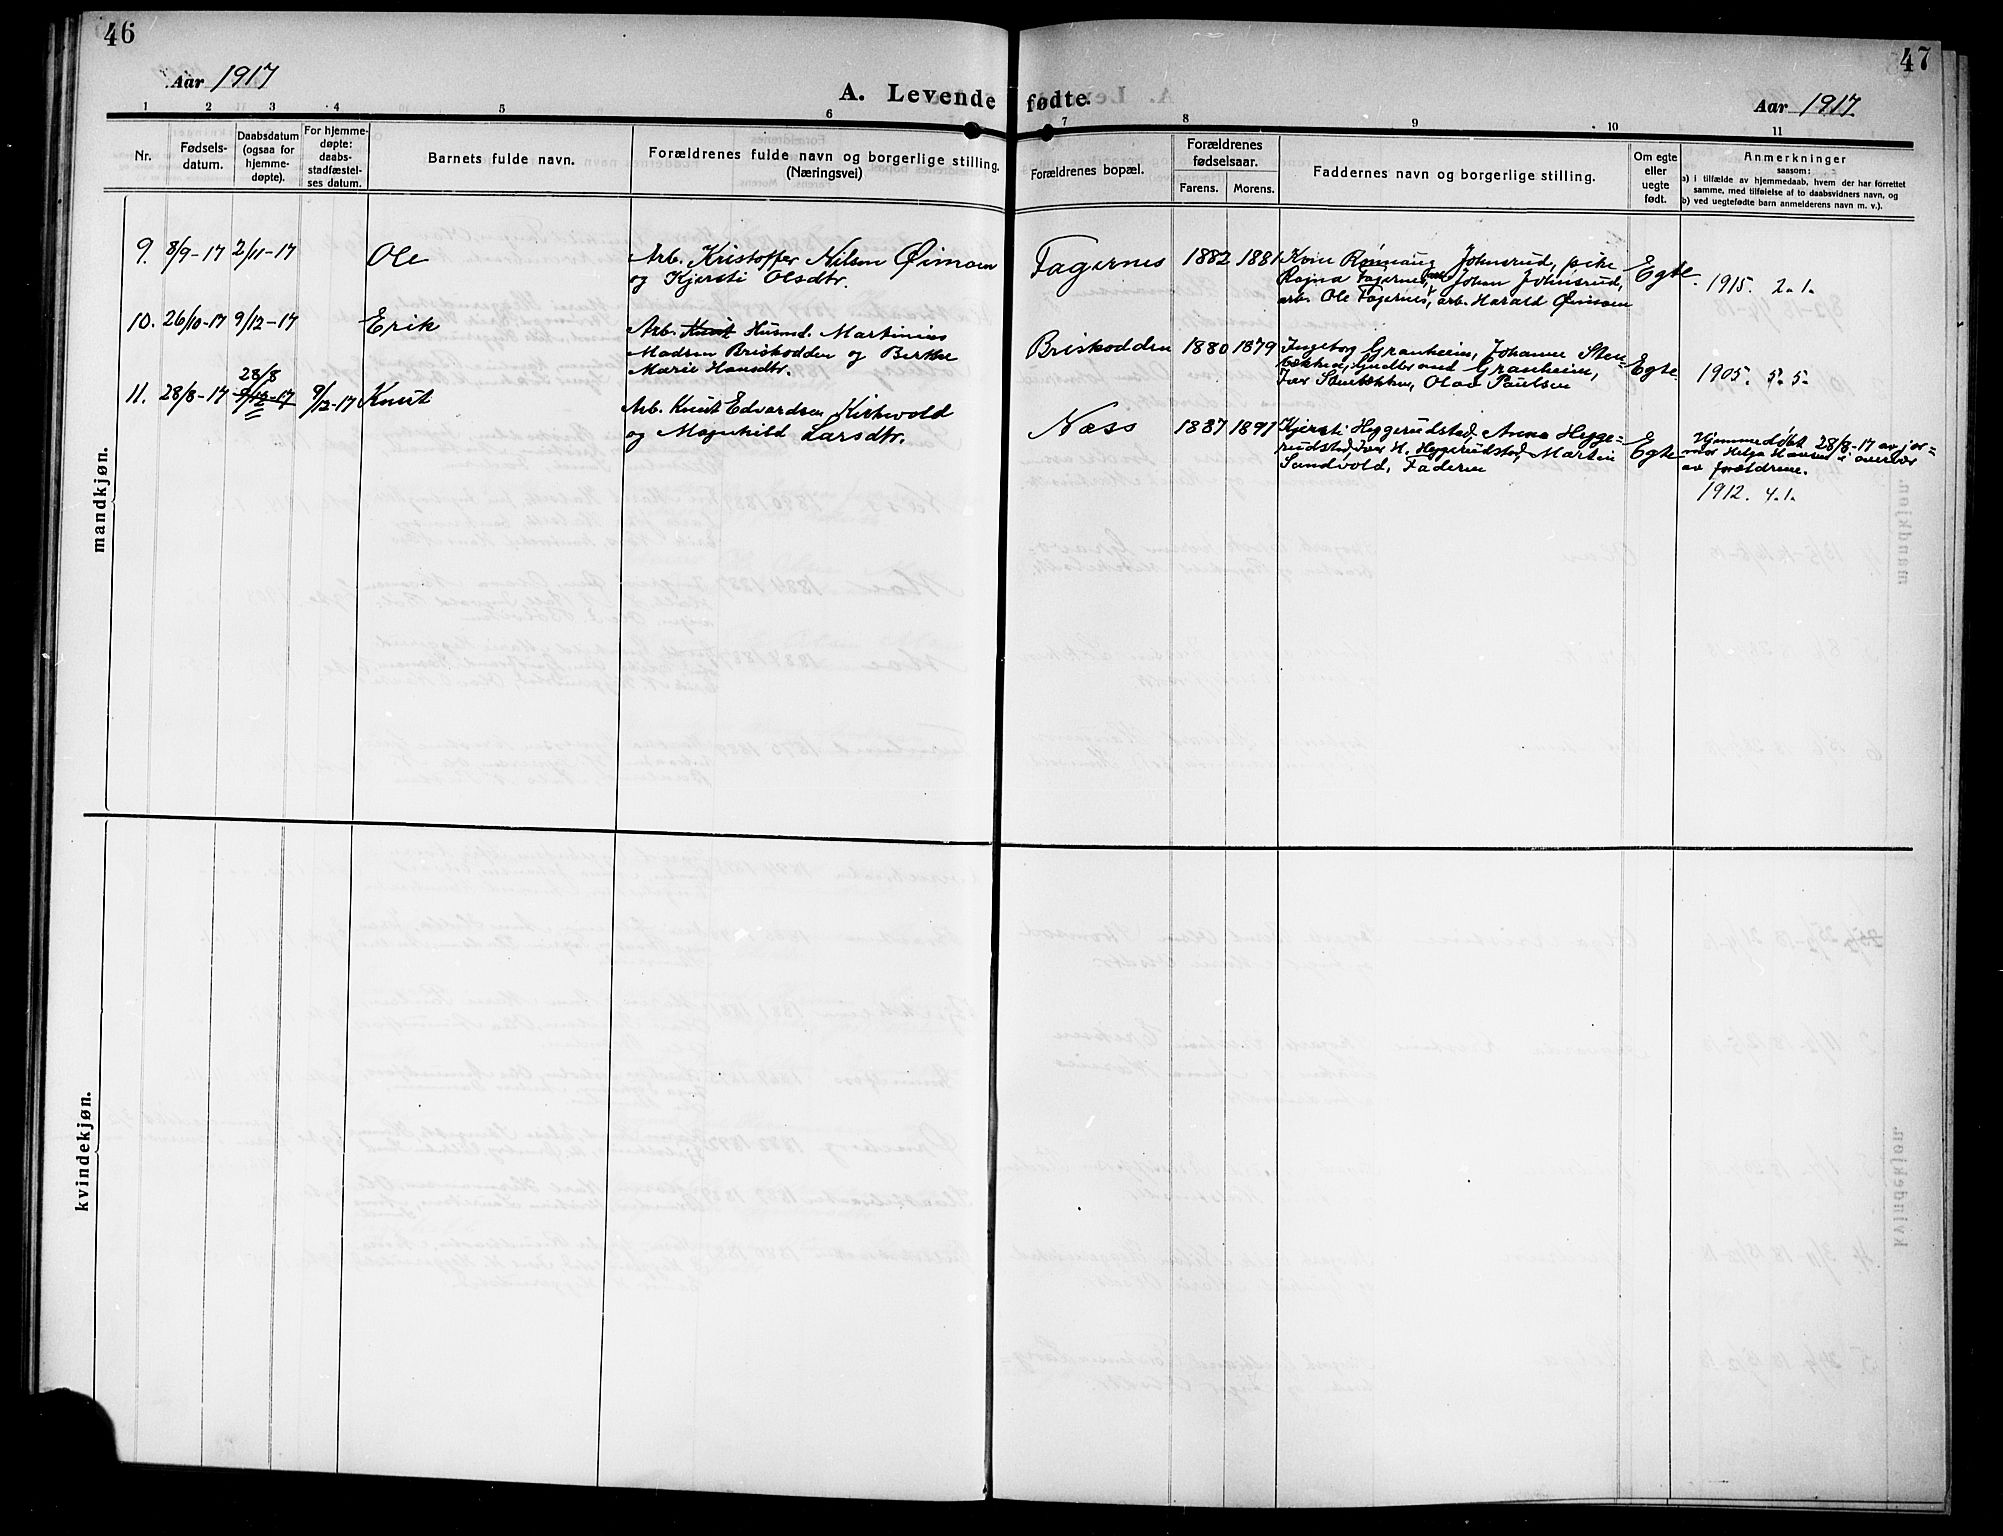 46
47
Aar 1917
A. Levende fødte.
Aar 1917.
1 2 3 4 5 6 7 8 9 10 11
Nr.
Fødsels-
datum.
Daabsdatum
(ogsaa for
hjemme-
døpte).
For hjemme-
døpte:
daabs-
stadfæstel-
ses datum.
Barnets fulde navn.
Forældrenes fulde navn og borgerlige stilling.
(Næringsvei)
Forældrenes bopæl.
Forældrenes
fødselsaar.
Farens. Morens.
Faddernes navn og borgerlige stilling.
Om egte
eller
uegte
født.
Anmerkninger
saasom:
a) i tilfælde av hjemmedaab, hvem der har forrettet
samme, med tilføielse af to daabsvidners navn, og
b) ved uegtefødte barn anmelderens navn m. v.).
mandkjøn.
9. 8/9-17 2/11-17 Ole
Arb. Kristoffer Nilsen Øimoen
og Kjersti Olsdtr.
Fagernes 1882 1881
Kvin Rønnaug Johnsrud, pike
Ragna Fagernes, Johan Johnsrud,
arb. Ole Fagernes, arb. Harald Øimoen
Egte.
1915. 2.1.
10. 26/10-17 9/12-17 Erik
Arb. Knut Husmd. Martinius
Madsen Briskodden og Berthe
Marie Hansdtr.
Briskodden 1880 1879
Ingeborg Granheim, Johanne Sten
bækken, Gudbrand Granheim,
Iver Stenbækken, Olav Paulsen
Egte
1905. 5.5.
11. 28/8-17 28/8 9/12-17 9/12-17 Knut
Arb. Knut Edvardsen Kirkvold
og Magnhild Larsdtr.
Næss 1887 1891
Kjersti Heggerudstad, Anna Hegge=
rudstad, Iver H. Heggerudstad, Martin
Sandvold, Faderen
Egte
Hjemmedøbt 28/8-17 av jor=
mor Helga Hansen i overvær
av forældrene.
1912. 4.1.
kvindekjøn.